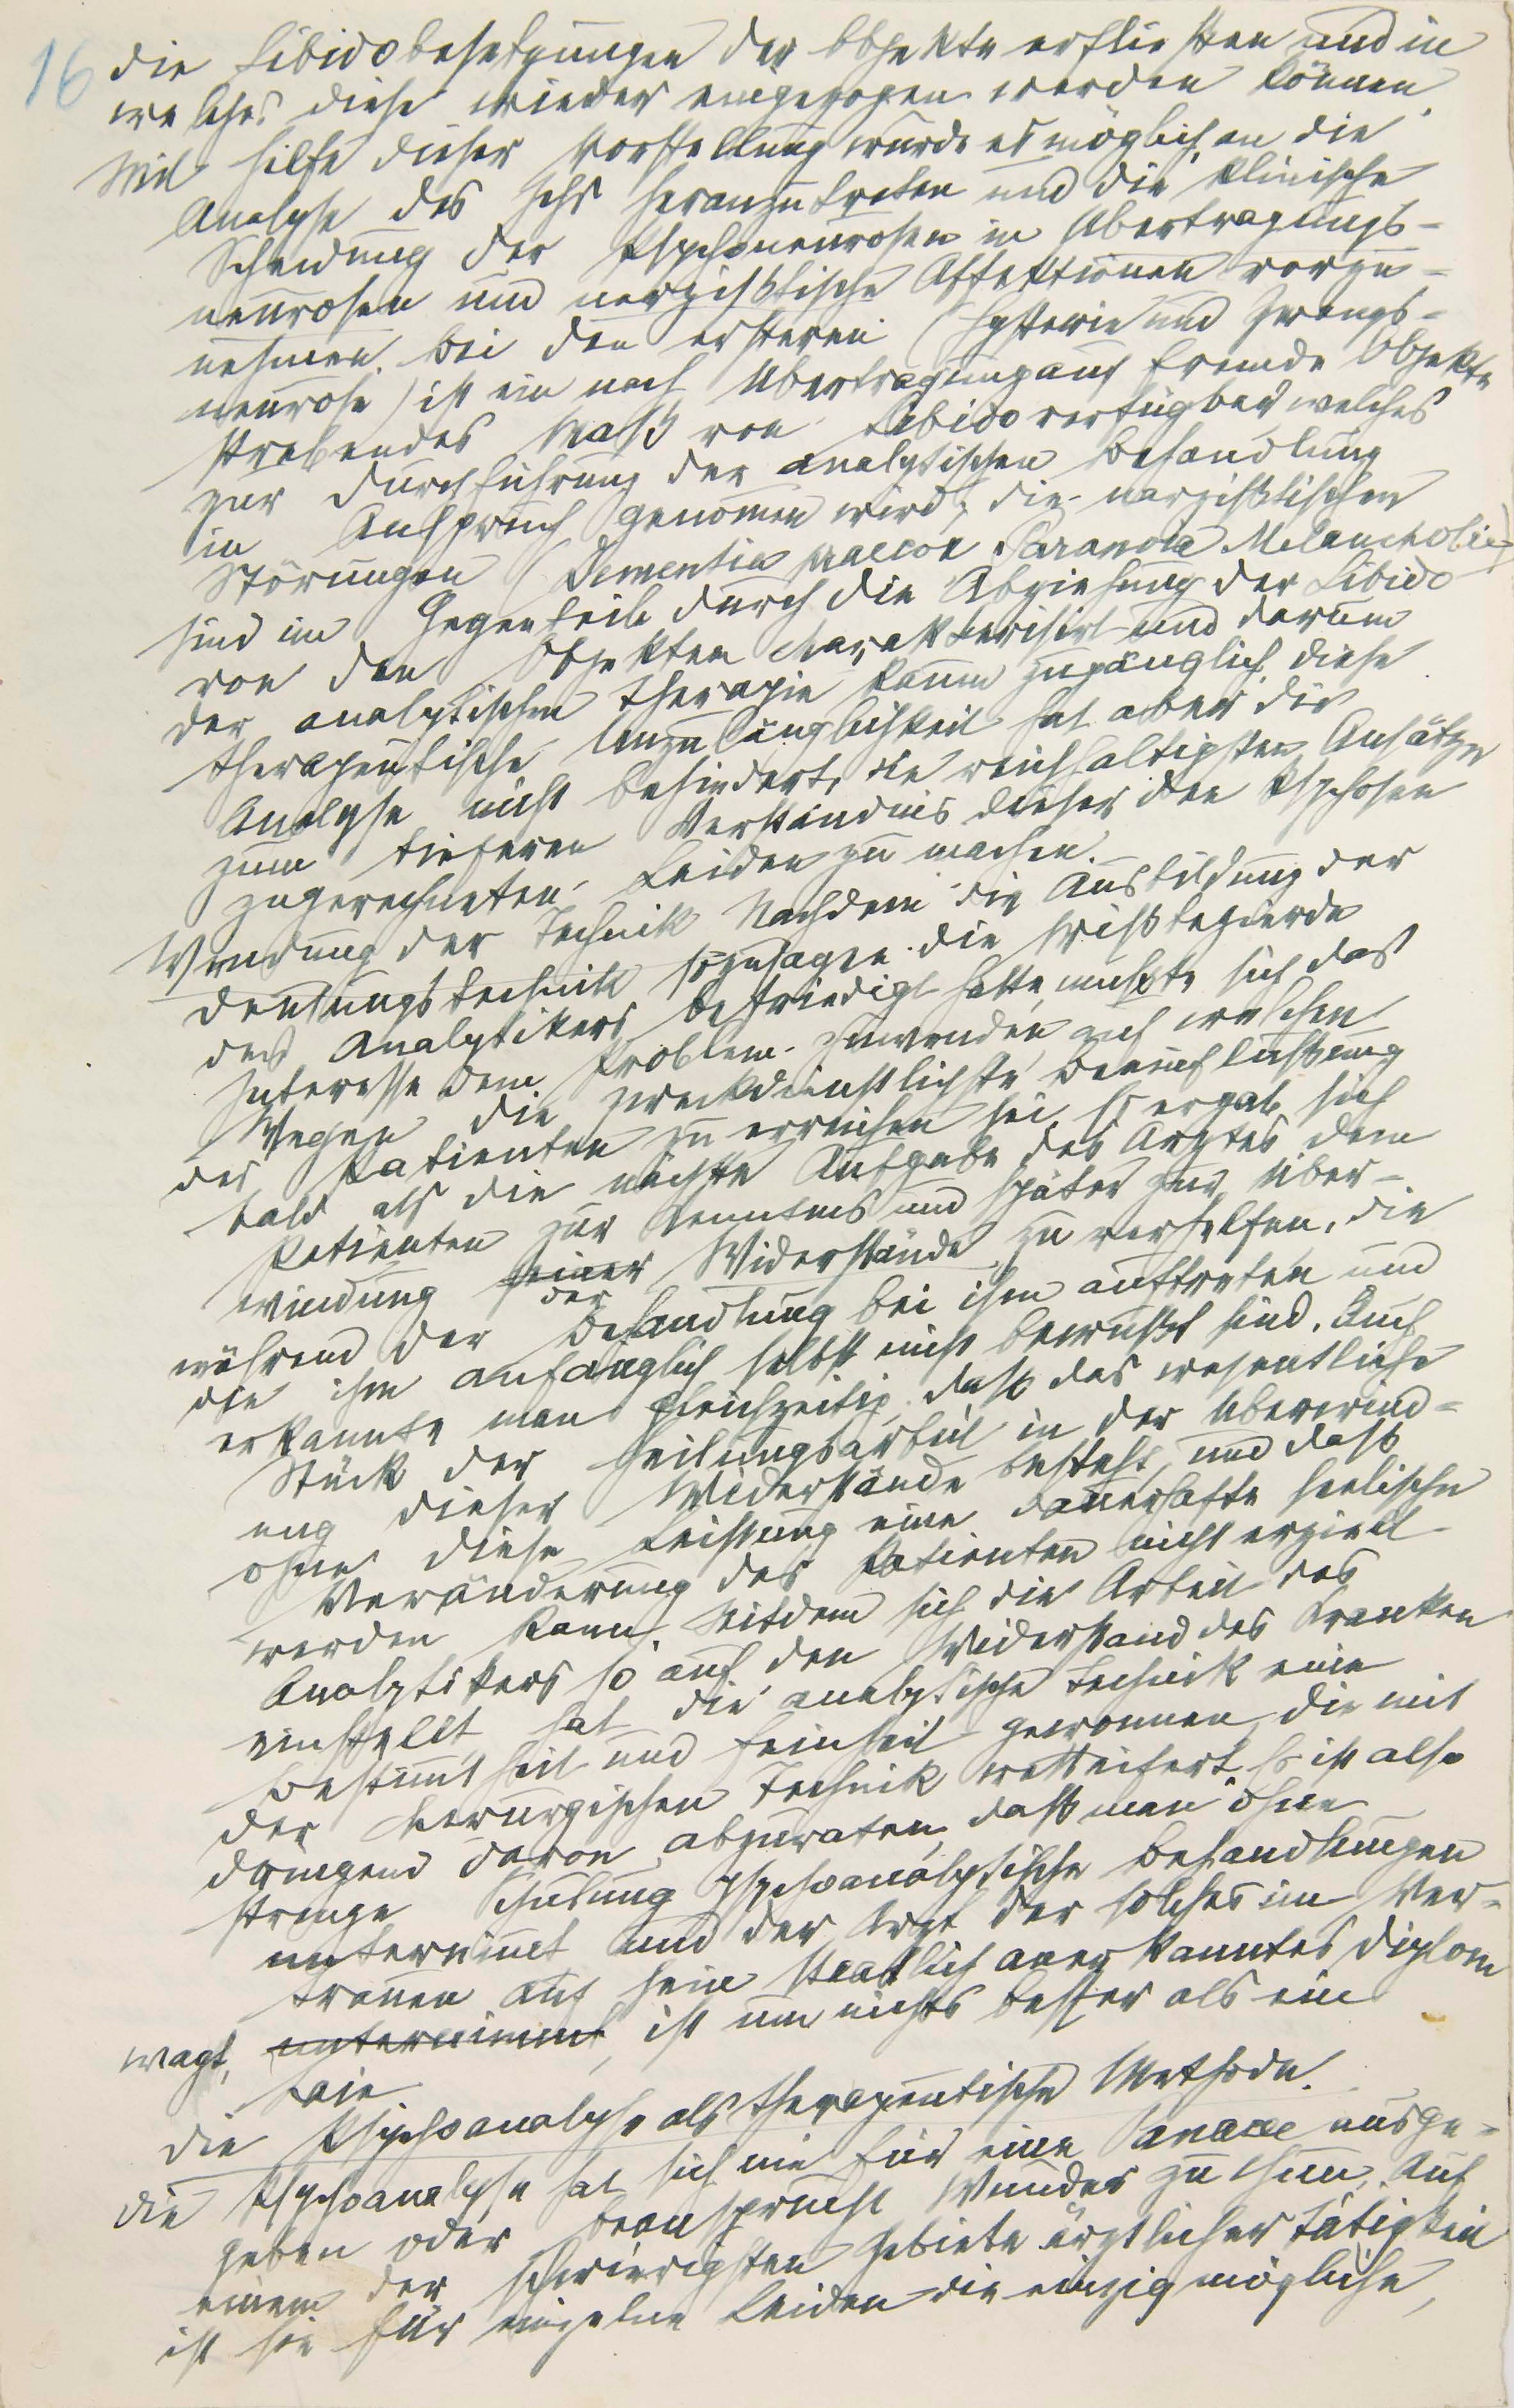 16 die Libidobesetzungen der Objekte erfließen und in
welches diese wieder eingezogen werden können.
Mit Hilfe dieser Vorstellung wurde es möglich, an die
Analyse des Ichs heranzutreten und die klinische
Scheidung der Psychoneurosen in Übertragungs-
neurosen und narzißtische Affektionen vorzu-
nehmen. Bei den ersteren (Hysterie und Zwangs-
neurose) ist ein nach Übertragung auf fremde Objekte
strebendes Maß von Libido verfügbar, welches
zur Durchführung der analytischen Behandlung
in Anspruch genommen wird; die narzißtischen
Störungen (Dementia praecox Paranoia Melancholie)
sind im Gegenteile durch die Abziehung der Libido
von den Objekten charakterisirt und darum
der analytischen Therapie kaum zugänglich. Diese
therapeutische Unzulänglichkeit hat aber die
Analyse nicht behindert, die reichhaltigsten Ansätze
zum tieferen Verständnis dieser den Psychosen
zugerechneten Leiden zu machen.
Wendung der Technik Nachdem die Ausbildung der
Deutungstechnik sozusagen die Wißbegierde
des Analytikers befriedigt hatte, mußte sich das
Interesse dem Problem zuwenden, auf welchen
Wegen die zweckdienlichste Beeinflußung
des Patienten zu erreichen sei. Es ergab sich
bald als die nächste Aufgabe des Arztes, dem
Patienten zur Kenntnis und später zur Über-
windung seiner Widerstände zu verhelfen, die
der
während der Behandlung bei ihm auftreten und
die ihm anfänglich selbst nicht bewußt sind. Auch
erkannte man gleichzeitig, daß das wesentliche
Stück der Heilungsarbeit in der Überwind-
ung dieser Widerstände besteht, und daß
ohne diese Leistung eine dauerhafte seelische
Veränderung des Patienten nicht erzielt
werden kann. Seitdem sich die Arbeit des
Analytikers so auf den Widerstand des Kranken
einstellt, hat die analytische Technik eine
Bestimmtheit und Feinheit gewonnen, die mit
der chirurgischen Technik wetteifert. Es ist also
dringend davon abzuraten, daß man ohne
strenge Schulung psychoanalytische Behandlungen
unternimmt und der Arzt, der solches im Ver-
trauen auf sein staatlich anerkanntes Diplom
wagt, unternimmt, ist um nichts besser als ein
Laie.
Die Psychoanalyse als therapeutische Methode.
Die Psychoanalyse hat sich nie für eine Panacee ausge-
geben oder beansprucht Wunder zu thun. Auf
einem der schwierigsten Gebiete ärztlicher Tätigkeit
ist sie für einzelne Leiden die einzig mögliche,